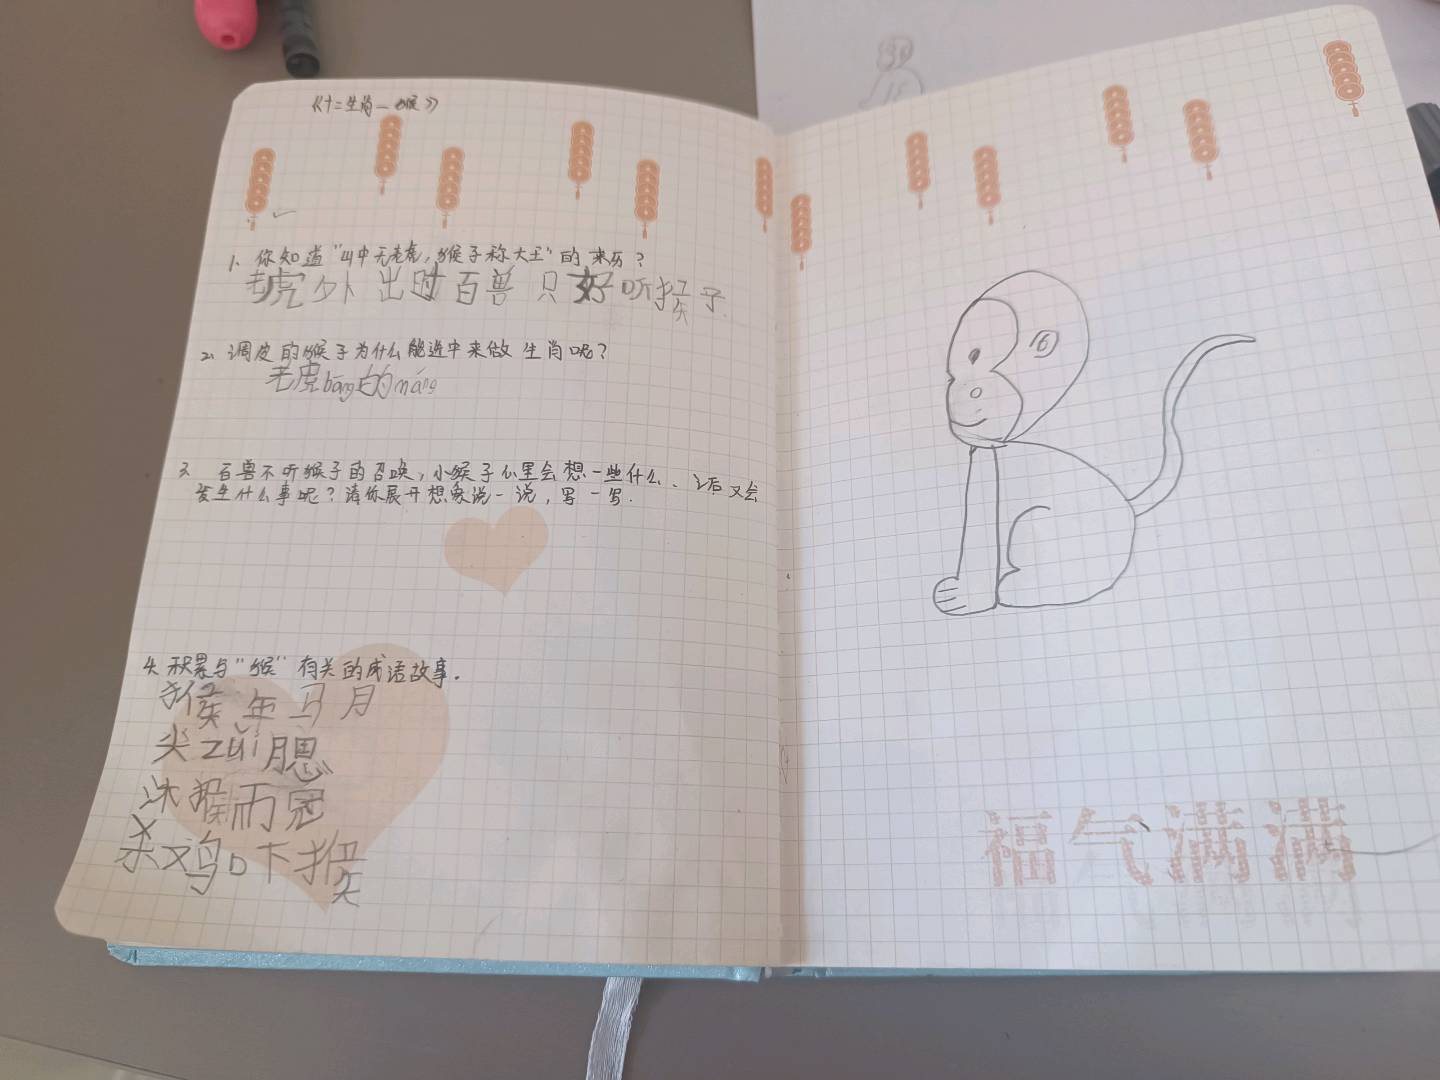 《十二生肖—猴》
1、你知道"山中无老虎,猴子称大王"的来历?
老虎外出时百兽只好听猴子.
2、调皮的猴子为什么能选中来做生肖呢?
老虎bāng的máng
3、百兽不听猴子的召唤,小猴子心里会想一些什么、之后又会
发生什么事呢?请你展开想象说一说,写一写.
4.积累与"猴"有关的成语故事.
猴年马月
尖zuǐ腮
沐猴而冠
杀鸡吓猴
福气满满